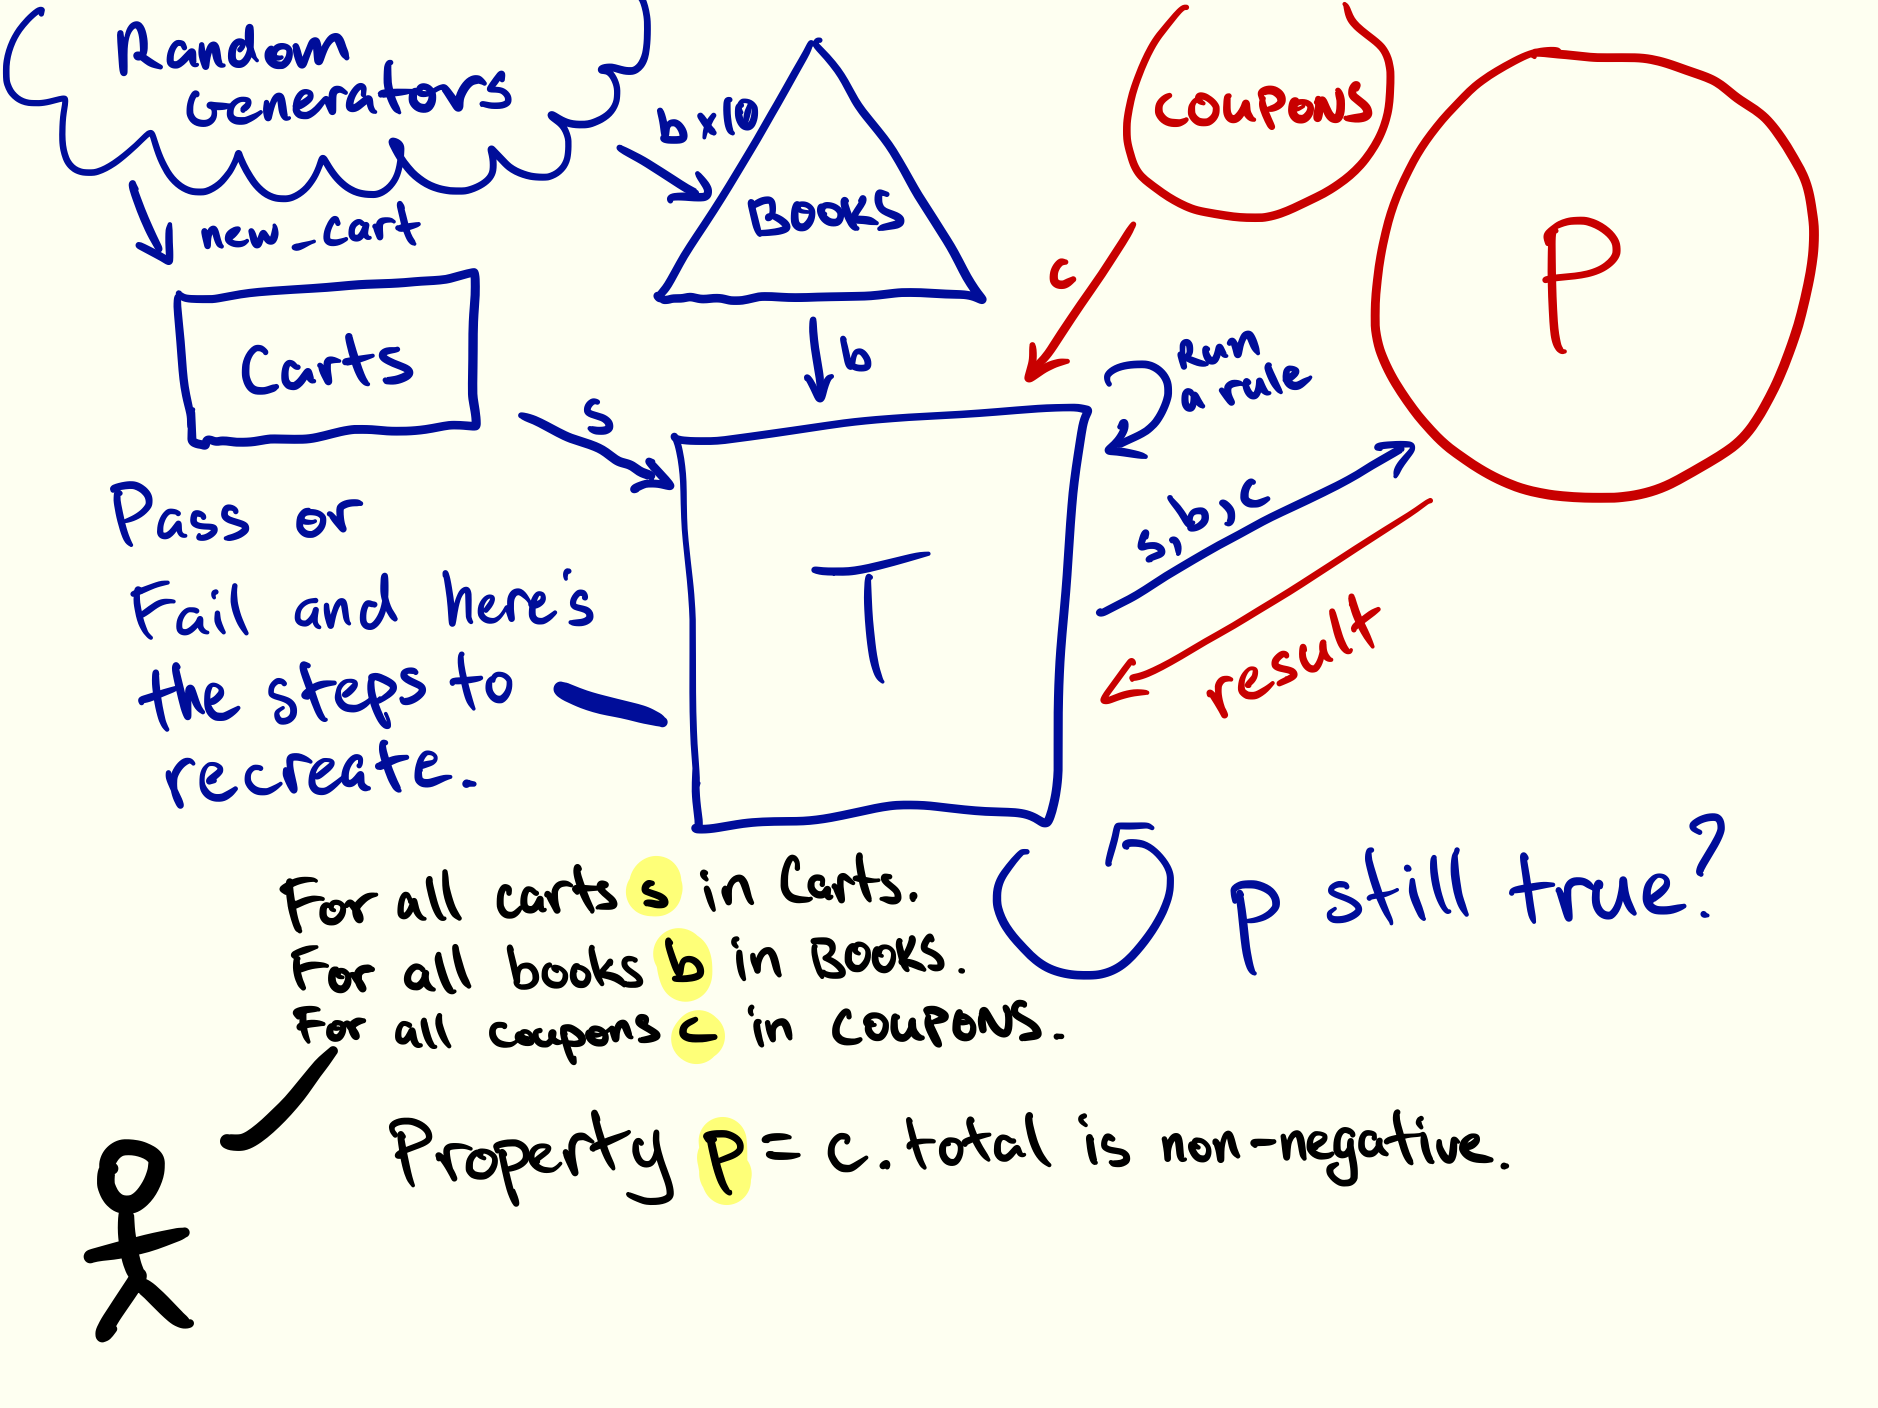 Random
Generators
b×10
new_cart
BOOKS
COUPONS
P
c
Carts
b
Run
a rule
s
s,b,c
T
result
Pass or
Fail and here's
the steps to
recreate.
For all carts s in Carts.
For all books b in BOOKS.
For all coupons c in COUPONS.
p still true?
Property p = c.total is non-negative.